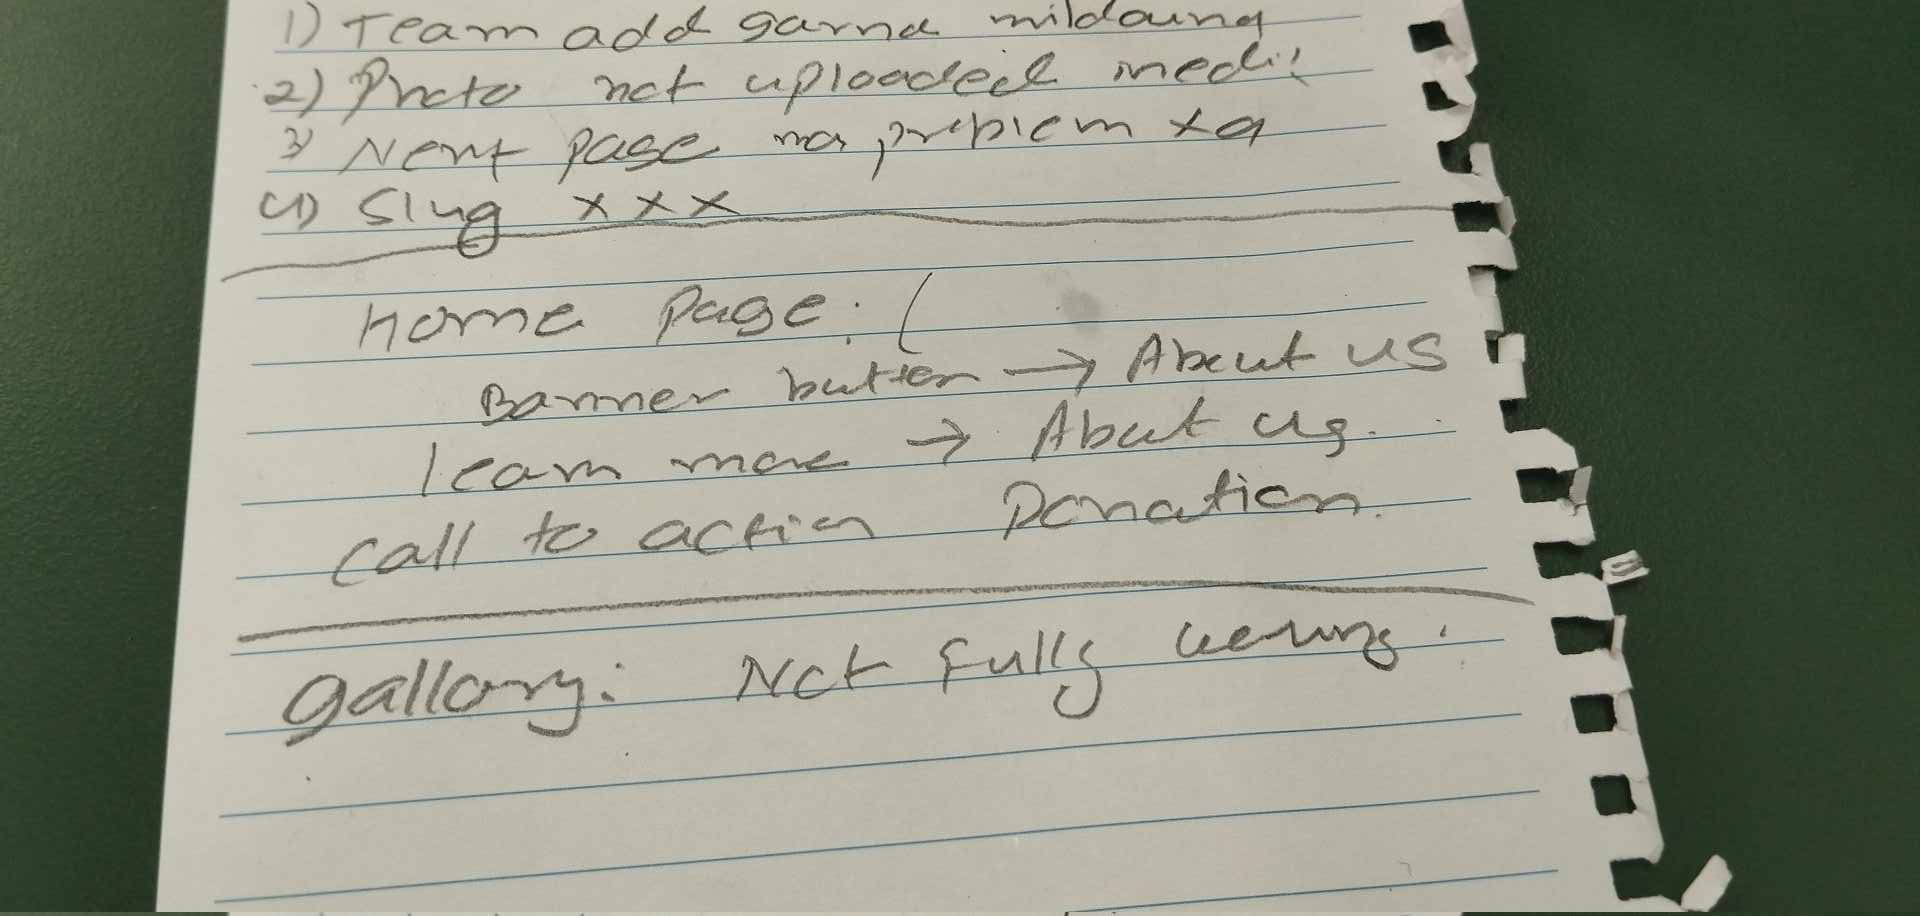 1) Team add garna mildaina
2) Photo not uploaded
3) Next page ma problem xa
4) Slug x x x
home page : (
Banner button → About us
learn more → About us.
call to action Donation.
gallary: Not fully